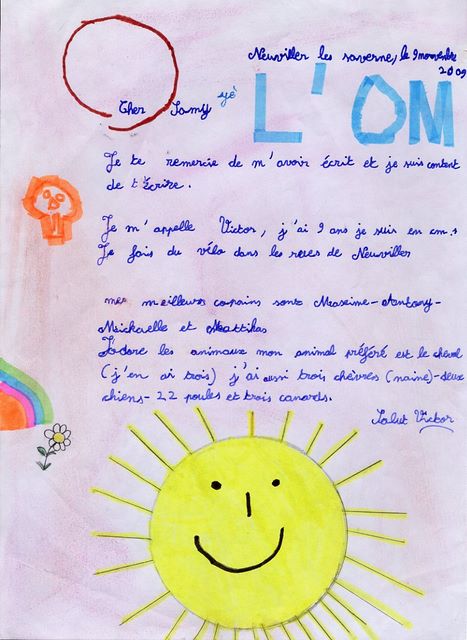 Neuviller les saverne, le 9 novembre
2009
Cher Samy
yè L'OM
Je te remercie de m'avoir écrit et je suis content
de t'Écrire.
Je m'appelle Victor, j'ai 9 ans je suis en cm.1
Je fais du vélo dans les rues de Neuviller
mes meilleurs copains sont Maxime-Antony-
Mickaelle et Matthias
J'adore les animaux mon animal préféré est le cheval
(j'en ai trois) j'ai aussi trois chèvres (naine)-deux
chiens-22 poules et trois canards.
Salut Victor